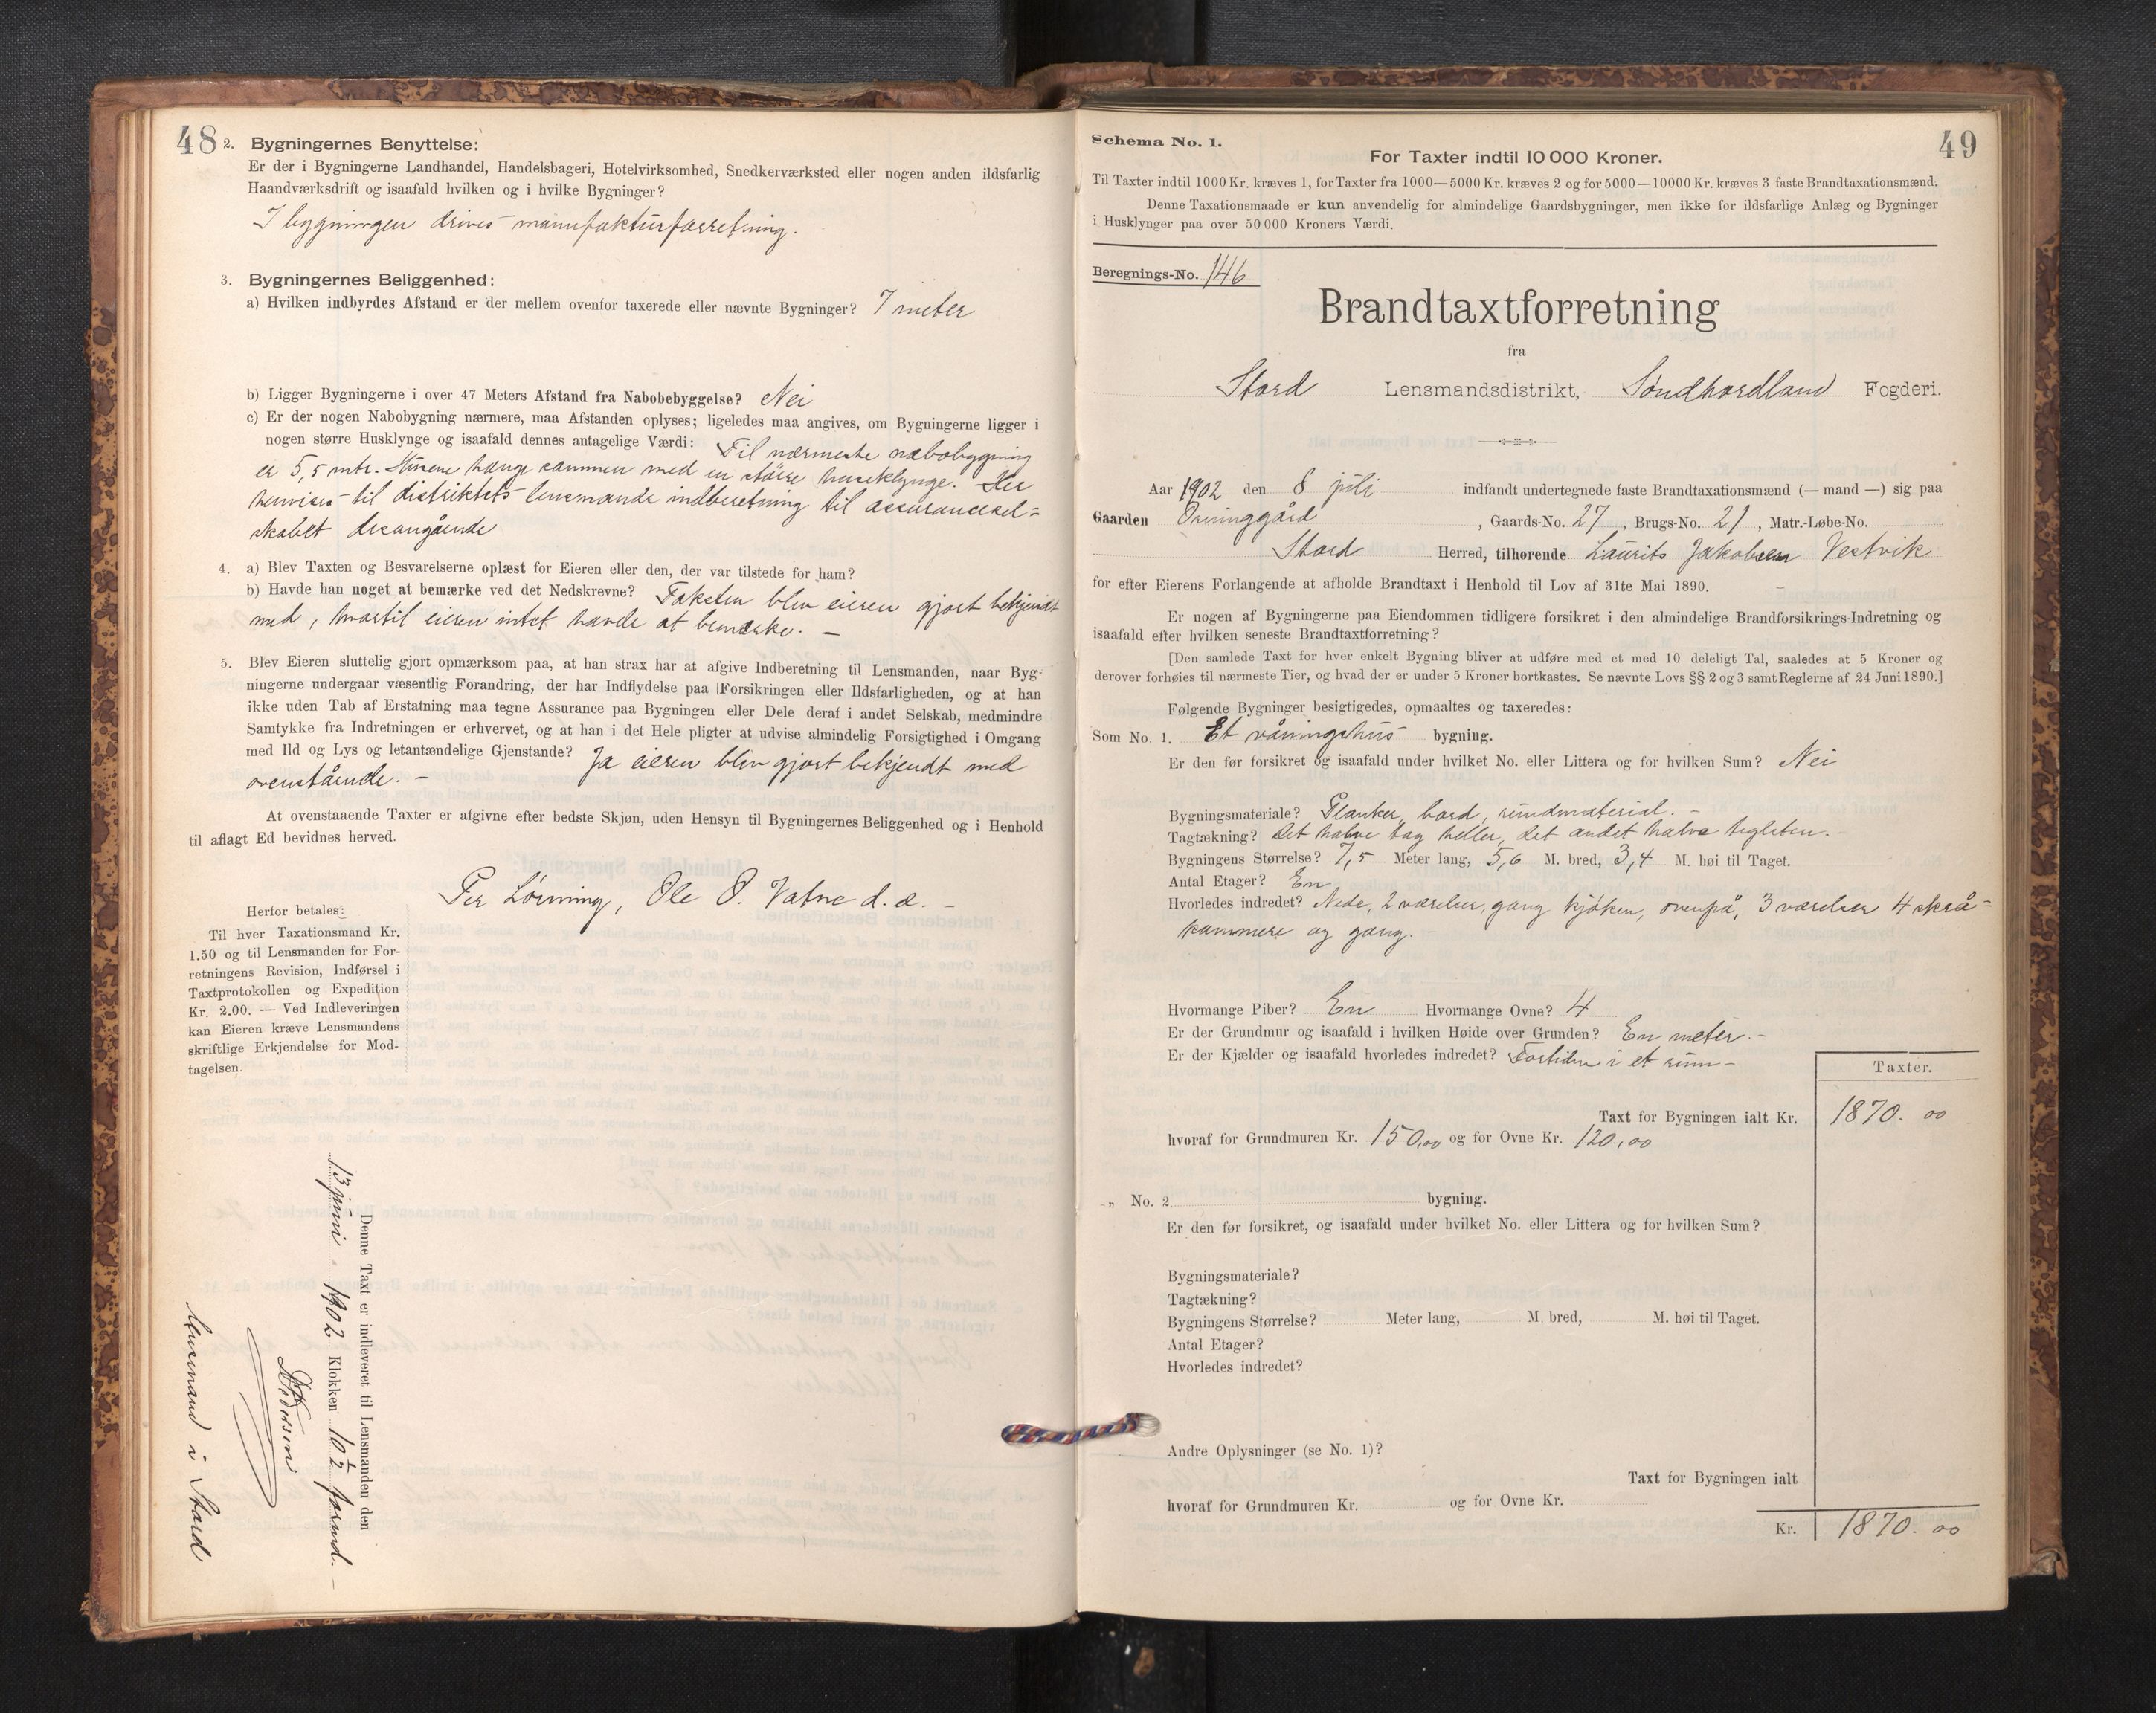 48
2. Bygningernes Benyttelse:
Er der i Bygningerne Landhandel, Handelsbageri, Hotelvirksomhed, Snedkerværksted eller nogen anden ildsfarlig
Haandværksdrift og isaafald hvilken og i hvilke Bygninger?
I bygningen drives manufakturforretning.
3. Bygningernes Beliggenhed:
a) Hvilken indbyrdes Afstand er der mellem ovenfor taxerede eller nævnte Bygninger? 7 meter
b) Ligger Bygningerne i over 47 Meters Afstand fra Nabobebyggelse? Nei
c) Er der nogen Nabobygning nærmere, maa Afstanden oplyses; ligeledes maa angives, om Bygningerne ligger i
nogen større Husklynge og isaafald dennes antagelige Værdi: Til nærmeste nabobygning
er 5,5 mtr. Husene hænge sammen med en større huseklynge. Her
henvises til distriktets lensmands indberetning til assurancesel=
skabet desangående
4. a) Blev Taxten og Besvarelserne oplæst for Eieren eller den, der var tilstede for ham?
b) Havde han noget at bemærke ved det Nedskrevne? Taksten blev eieren gjort bekjendt
med, hvortil eieren intet havde at bemærke. —
5. Blev Eieren sluttelig gjort opmærksom paa, at han strax har at afgive Indberetning til Lensmanden, naar Byg-
ningerne undergaar væsentlig Forandring, der har Indflydelse paa Forsikringen eller Ildsfarligheden, og at han
ikke uden Tab af Erstatning maa tegne Assurance paa Bygningen eller Dele deraf i andet Selskab, medmindre
Samtykke fra Indretningen er erhvervet, og at han i det Hele pligter at udvise almindelig Forsigtighed i Omgang
med Ild og Lys og letantændelige Gjenstande? Ja eieren blev gjort bekjendt med
ovenstående. —
At ovenstaaende Taxter er afgivne efter bedste Skjøn, uden Hensyn til Bygningernes Beliggenhed og i Henhold
til aflagt Ed bevidnes herved.
Per Lønning, Ole O. Vatne d.e. —
Herfor betales:
Til hver Taxationsmand Kr.
1.50 og til Lensmanden for For-
retningens Revision, Indførsel i
Taxtprotokollen og Expedition
Kr. 2.00. — Ved Indleveringen
kan Eieren kræve Lensmandens
skriftlige Erkjendelse for Mod-
tagelsen.
Denne Taxt er indleveret til Lensmanden den
13 juni 1902 Klokken 10 1/2 formd. —
Lensmand i Stord
49
Schema No. 1.
For Taxter indtil 10 000 Kroner.
Til Taxter indtil 1000 Kr. kræves 1, for Taxter fra 1000—5000 Kr. kræves 2 og for 5000—10000 Kr. kræves 3 faste Brandtaxationsmænd.
Denne Taxationsmaade er kun anvendelig for almindelige Gaardsbygninger, men ikke for ildsfarlige Anlæg og Bygninger
i Husklynger paa over 50 000 Kroners Værdi.
Beregnings-No. 146
Brandtaxtforretning
fra
Stord Lensmandsdistrikt, Søndhordland Fogderi.
Aar 1902 den 8 juli indfandt undertegnede faste Brandtaxationsmænd (— mand —) sig paa
Gaarden , Gaards-No. 27, Brugs-No. 21, Matr.-Løbe-No.
Stord Herred, tilhørende Laurits Jakobsen Vestvik
for efter Eierens Forlangende at afholde Brandtaxt i Henhold til Lov af 31te Mai 1890.
Er nogen af Bygningerne paa Eiendommen tidligere forsikret i den almindelige Brandforsikrings-Indretning og
isaafald efter hvilken seneste Brandtaxtforretning?
[Den samlede Taxt for hver enkelt Bygning bliver at udføre med et med 10 deleligt Tal, saaledes at 5 Kroner og
derover forhøies til nærmeste Tier, og hvad der er under 5 Kroner bortkastes. Se nævnte Lovs §§ 2 og 3 samt Reglerne af 24 Juni 1890.]
Følgende Bygninger besigtigedes, opmaaltes og taxeredes:
Som No. 1. Et våningshus bygning.
Er den før forsikret og isaafald under hvilket No. eller Littera og for hvilken Sum? Nei
Bygningsmateriale? Planker, bord, rundmaterial. —
Tagtækning? Det halve tag heller, det andet halve teglsten. —
Bygningens Størrelse? 7,5 Meter lang, 5,6 M. bred, 3,4 M. høi til Taget.
Antal Etager? En
Hvorledes indredet? Nede, 2 værelser, gang kjøken, ovenpå, 3 værelser 4 skrå-
kammere og gang. —
Hvormange Piber? En Hvormange Ovne? 4
Er der Grundmur og isaafald i hvilken Høide over Grunden? En meter. —
Er der Kjælder og isaafald hvorledes indredet? Fortiden i et rum —
Taxter.
Taxt for Bygningen ialt Kr. 1870. 00
hvoraf for Grundmuren Kr. 150,00 og for Ovne Kr. 120,00
„ No. 2 bygning.
Er den før forsikret, og isaafald under hvilket No. eller Littera og for hvilken Sum?
Bygningsmateriale?
Tagtækning?
Bygningens Størrelse? Meter lang, M. bred, M. høi til Taget.
Antal Etager?
Hvorledes indredet?
Andre Oplysninger (se No. 1)?
Taxt for Bygningen ialt
hvoraf for Grundmuren Kr. og for Ovne Kr.
Kr. 1870. 00